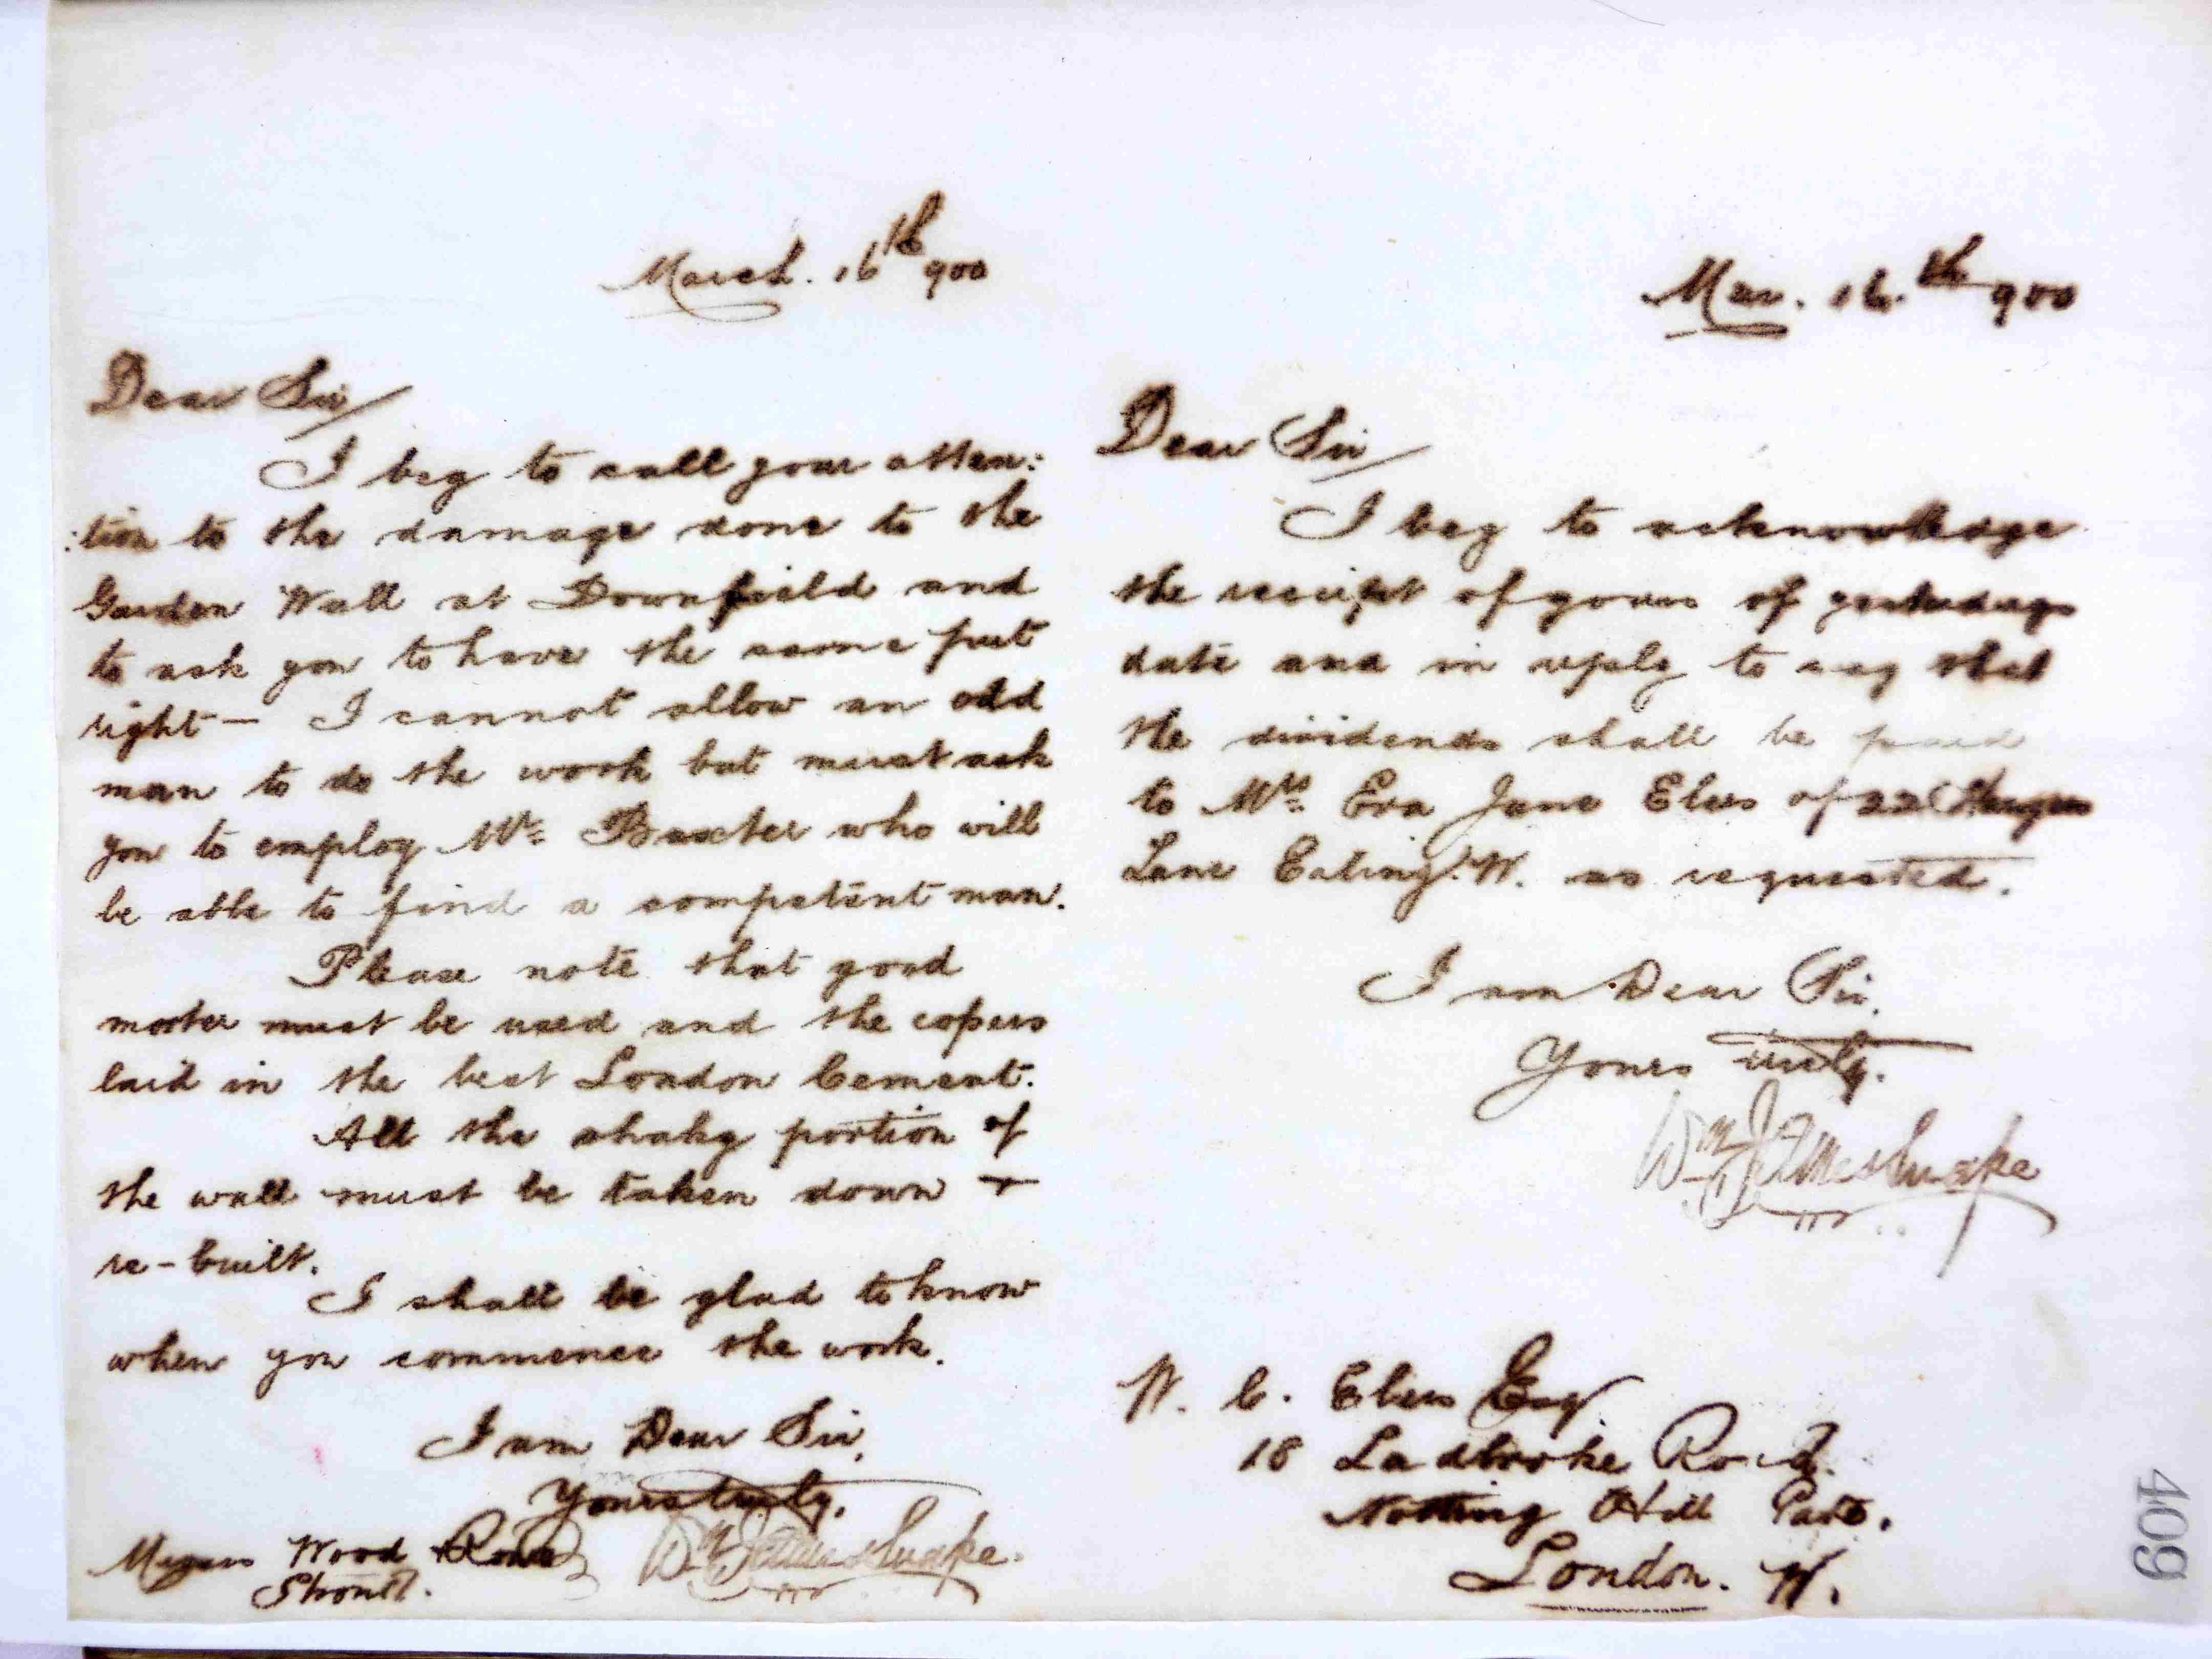 March. 16th 900
Dear Sir/
I beg to call your atten:
:tion to the damage done to the
Garden Wall at Downfield and
to ask you to have the same put
right — I cannot allow an odd
man to do the work but must ask
you to employ Mr. Baxter who will
be able to find a competent man.
Please note that good
morter must be used and the copers
laid in the best London Cement.
All the shaky portion of
the wall must be taken down +
re-built.
I shall be glad to know
when you commence the work.
I am Dear Sir,
Yours truly,
Wood
Stroud.
Mar. 16.th 900
Dear Sir/
I beg to acknowledge
the receipt of yours of yesterdays
date and in reply to say that
the dividends shall be paid
to Mrs. Eva Jane Elers of 22
Lane Ealing. W. as requested.
I am Dear Sir,
Yours truly.
W. C. Elers Esq
18 Ladbroke Road.
Notting Hill Gate.
London. W.
409